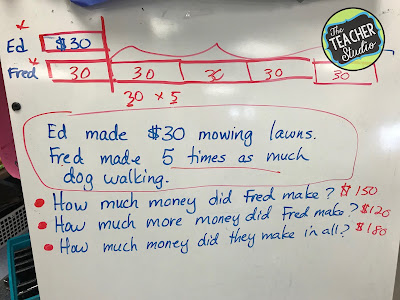 The
TEACHER
Studio
Ed $30
Fred 30 30 30 30 30
30 × 5
Ed made $30 mowing lawns.
Fred made 5 times as much
dog walking.
• How much money did Fred make? $150
• How much more money did Fred make? $120
• How much money did they make in all? $180